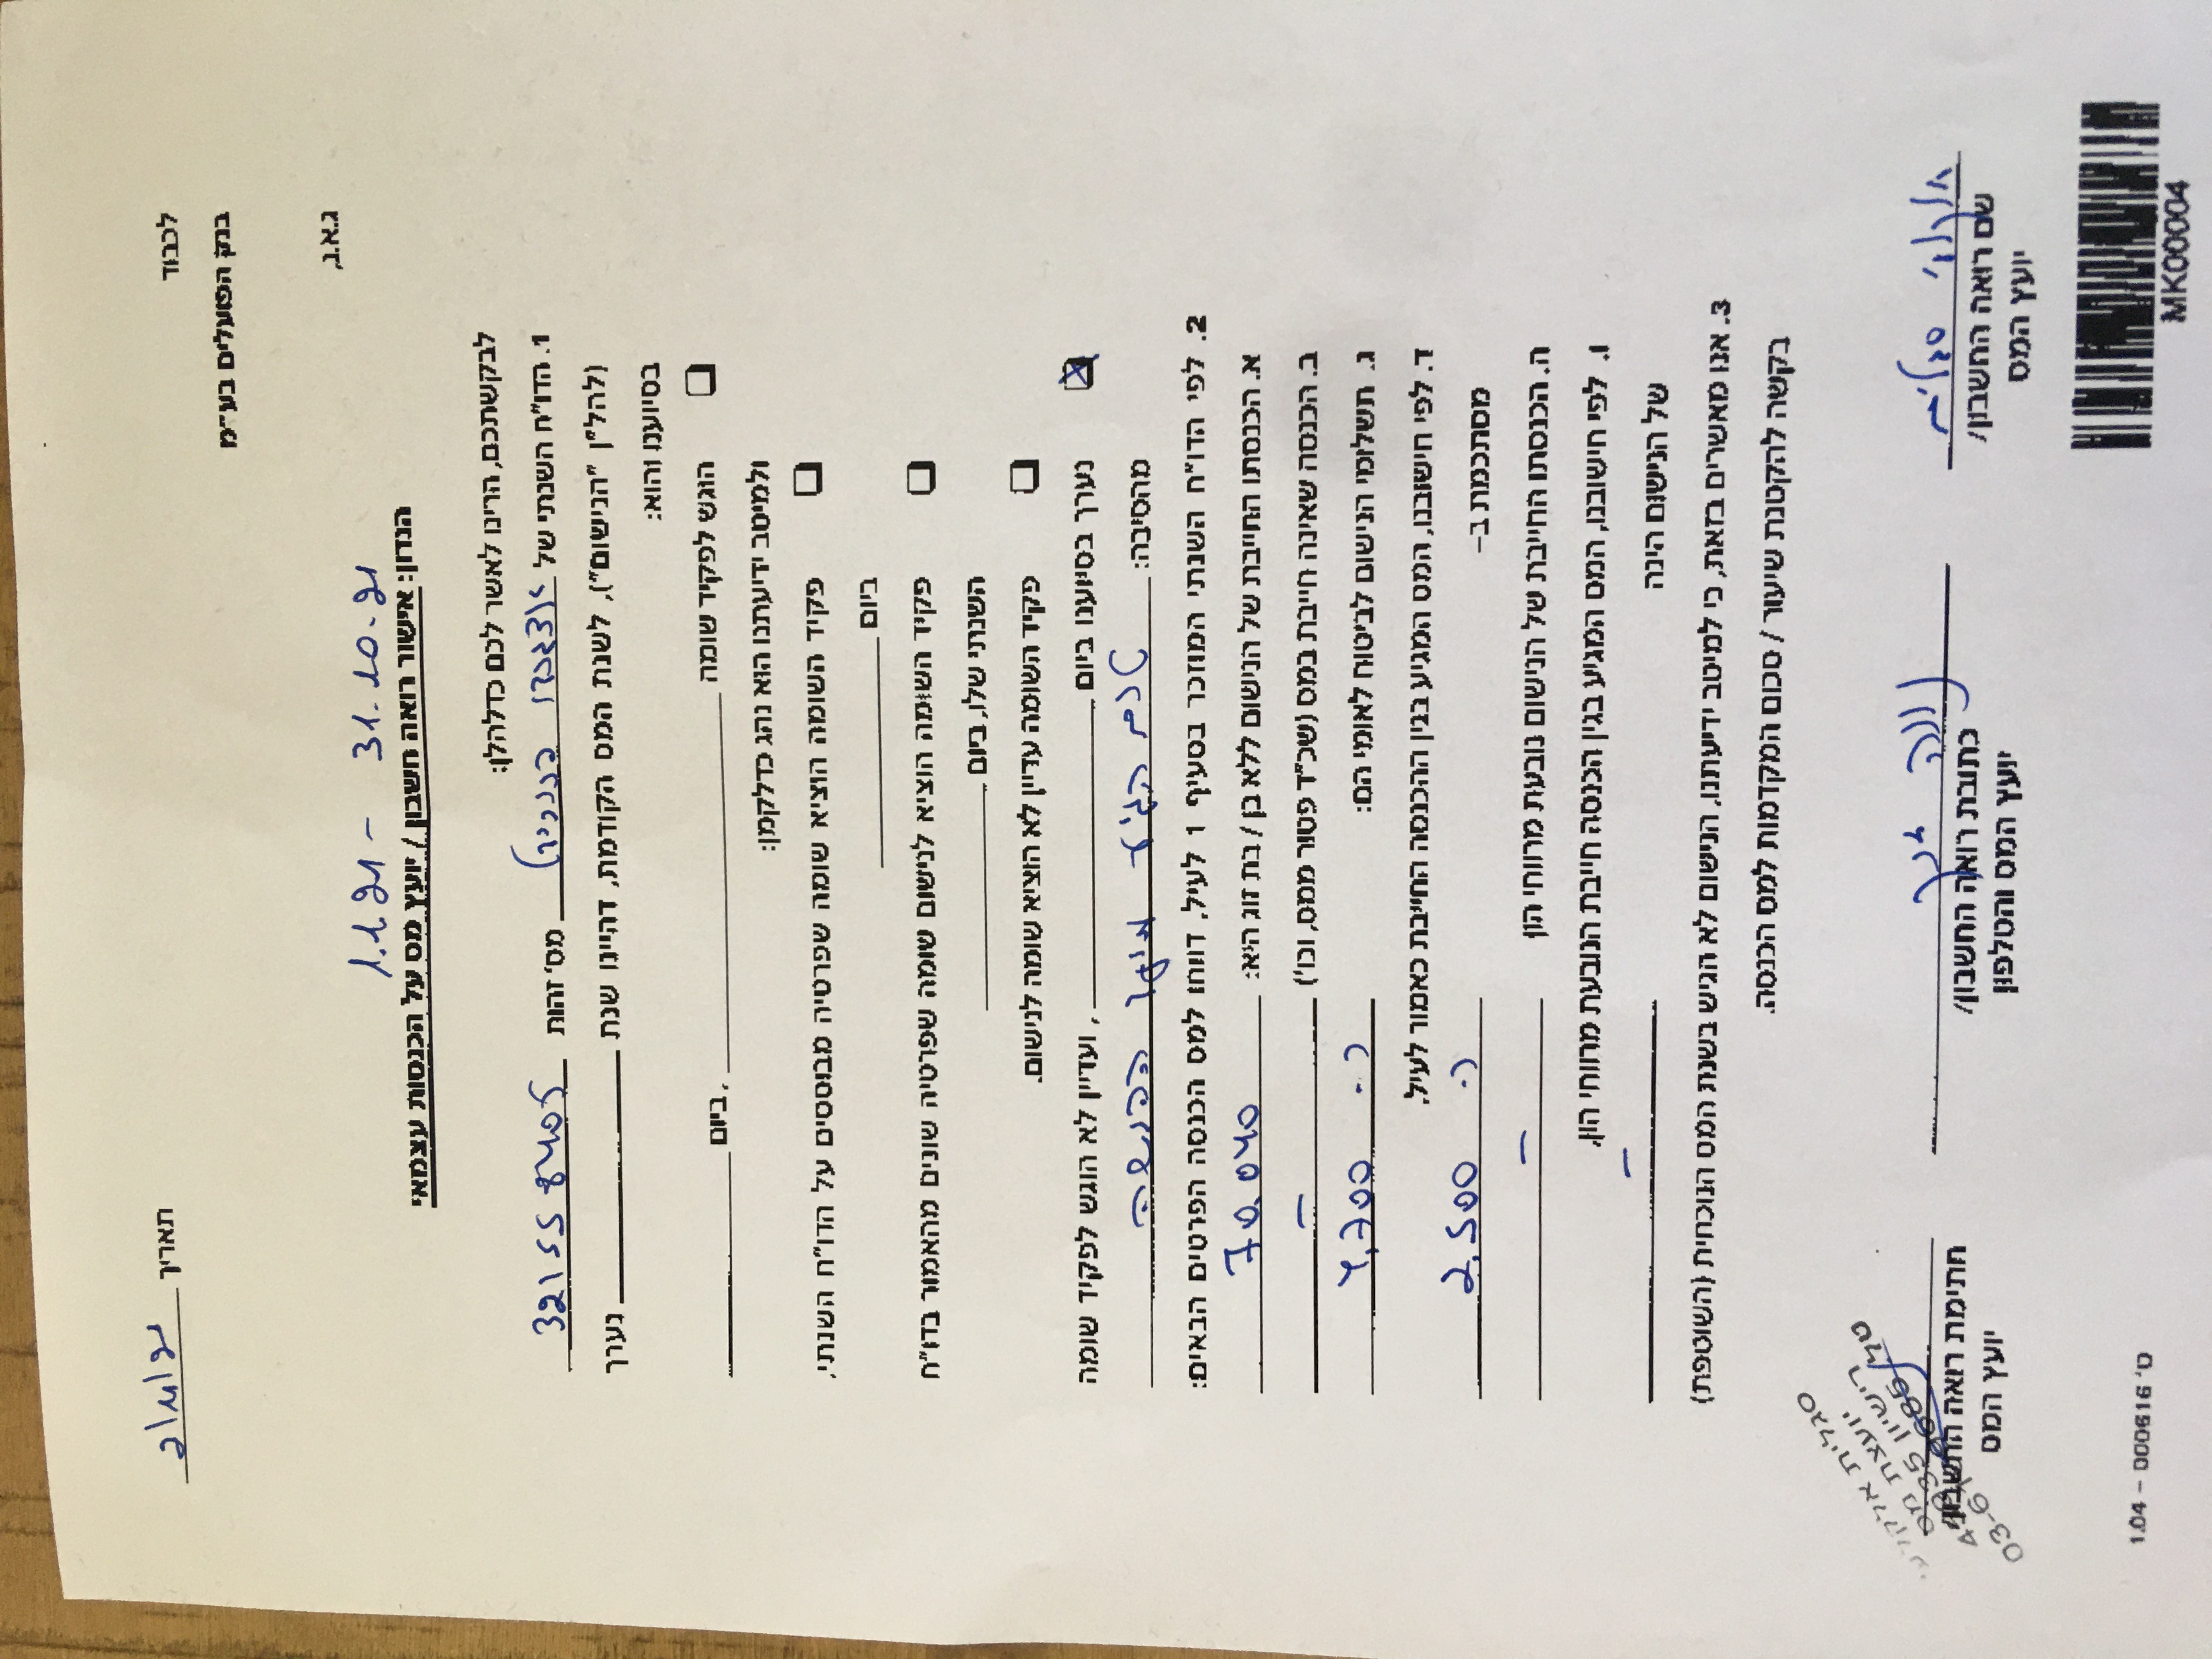 לכבוד
תאריך
בנק הפועלים בע״מ
ג.א.נ,
1.1.21 - 31.10.21
הנדון: אישור רואה חשבון / יועץ מס על הכנסות עצמאי
לבקשתכם, הרינו לאשר לכם כדלהלן:
1. הדו״ח השנתי של מס' זהות
(להל״ן ״הנישום״), לשנת המס הקודמת, דהיינו שנת נערך
בסיוענו והוא:
הוגש לפקיד שומה , ביום
ולמיטב ידיעתנו הוא נהג כדלקמן:
פקיד השומה הוציא שומה שפרטיה מבוססים על הדו״ח השנתי,
ביום
פקיד השומה הוציא לנישום שומה שפרטיה שונים מהאמור בדו״ח
השנתי שלו, ביום
פקיד השומה עדיין לא הוציא שומה לנישום.
נערך בסיוענו ביום , ועדיין לא הוגש לפקיד שומה
מהסיבה: טרם הגיע מועד ההגשה
2. לפי הדו״ח השנתי המוזכר בסעיף 1 לעיל, דווחו למס הכנסה הפרטים הבאים:
א. הכנסתו החייבת של הנישום ללא בן / בת זוג היא: 70.040
ב. הכנסה שאינה חייבת במס (שכ״ד פטור ממס, וכו') -
ג. תשלומי הנישום לביטוח לאומי הם: כ- 4,700
ד. לפי חישובנו, המס המגיע בגין ההכנסה החייבת כאמור לעיל,
מסתכמת ב– כ- 2,500
ה. הכנסתו החייבת של הנישום נובעת מרווחי הון -
ו. לפי חישובנו, המס המגיע בגין הכנסה חייבת הנובעת מרווחי הון,
של הנישום הינה -
3. אנו מאשרים בזאת, כי למיטב ידיעתנו, הנישום לא הגיש בשנת המס הנוכחית (השוטפת)
בקשה להקטנת שיעור / סכום המקדמות למס הכנסה.
סגלית אלקלעי
יועצת מס
רישיון
טל.
אלקלעי סגלית
שם רואה החשבון/
יועץ המס
כתובת רואה החשבון/
יועץ המס והטלפון
חתימת רואה החשבון/
יועץ המס
MK00004
ט' 000616 – 1.04